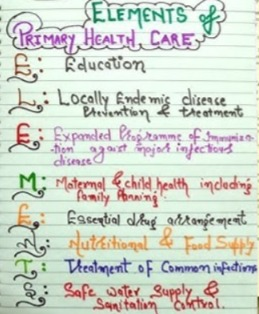 ELEMENTS of
PRIMARY HEALTH CARE
E: Education
L: Locally Endemic disease
Prevention & treatment
E: Expanded Programme of Immuniza
-tion against major infectious
disease
M: Maternal & child health including
Family Planning.
E: Essential drug arrangement
N: Nutritional & Food Supply
T: Treatment of Common infections
S: Safe Water Supply &
Sanitation Control.